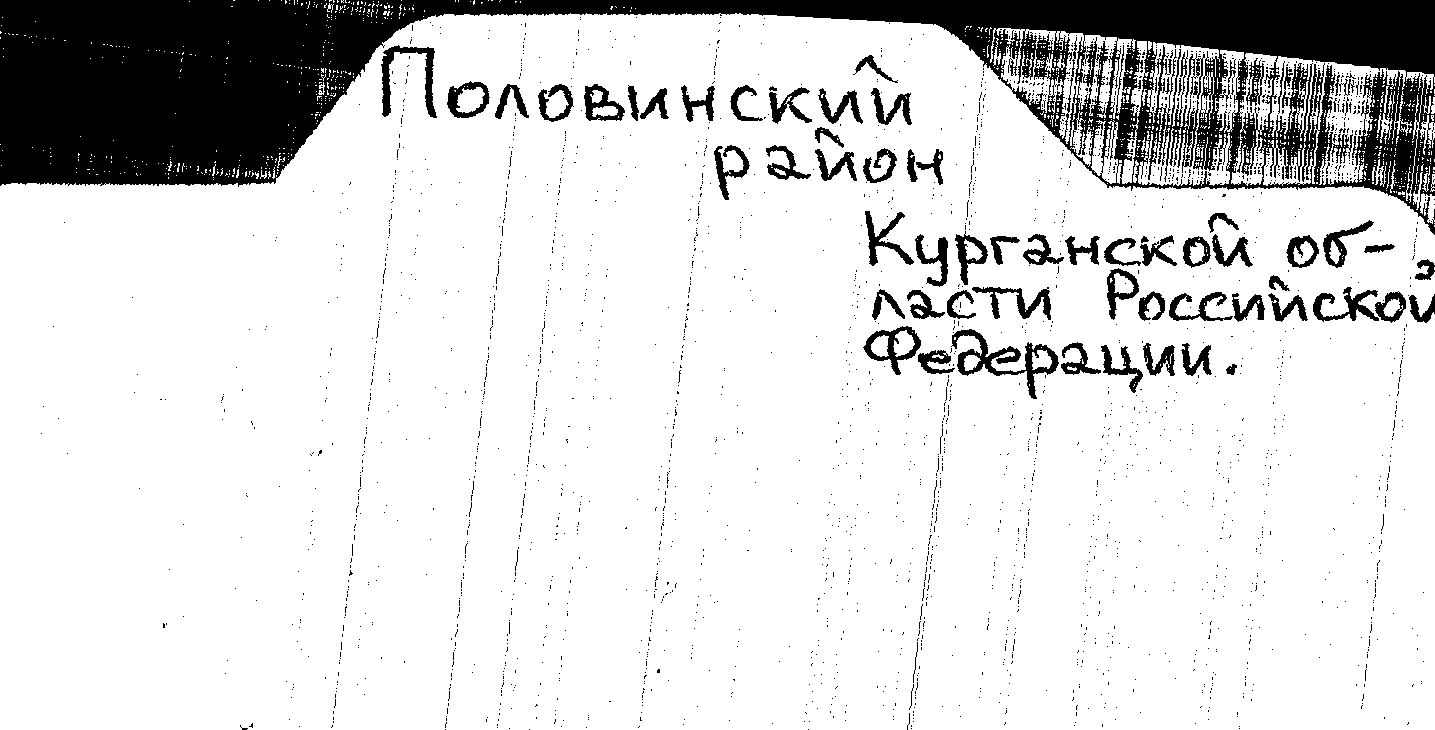 Половинский
район
Курганской об-
ласти Российской
Федерации.